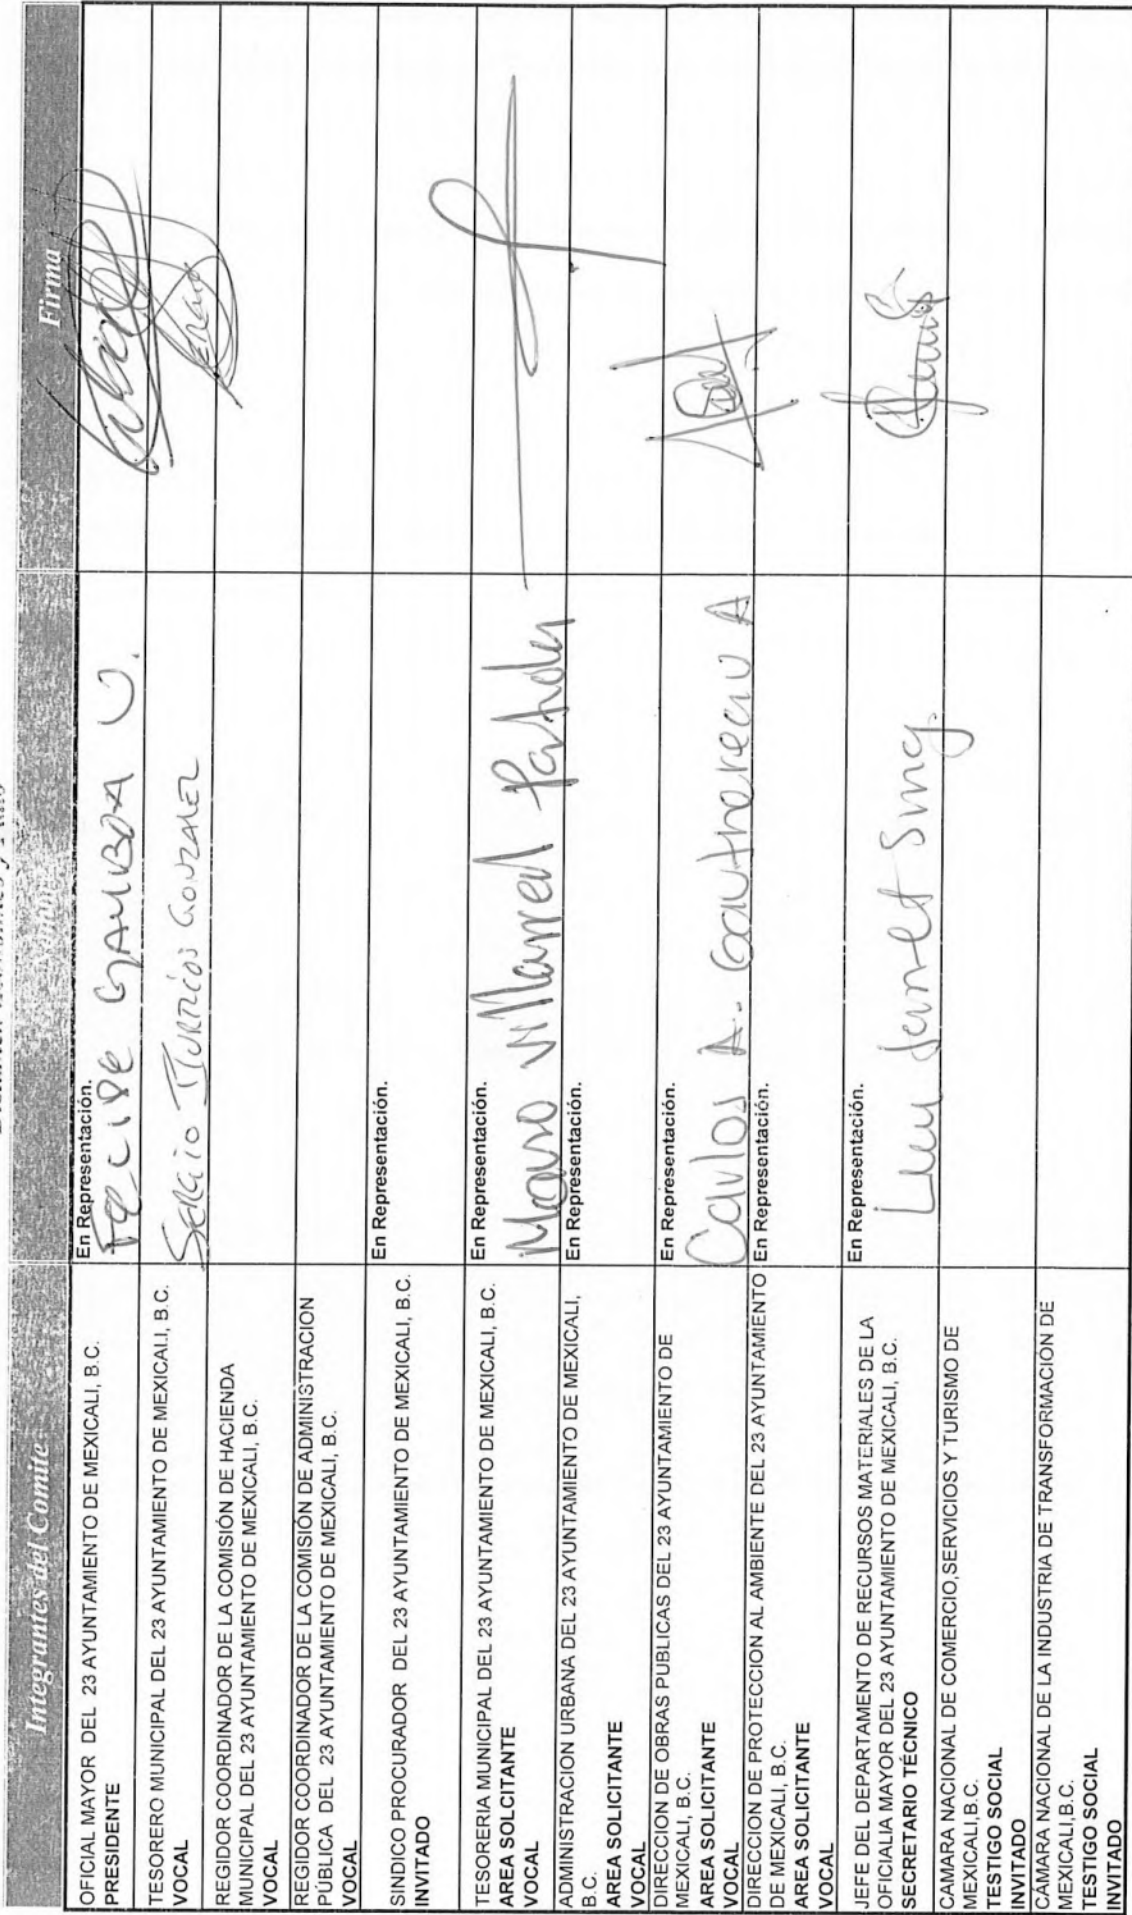 Integrantes del Comite
Firma
OFICIAL MAYOR DEL 23 AYUNTAMIENTO DE MEXICALI, B.C.
PRESIDENTE
En Representación.
FELIPE GAMBOA
TESORERO MUNICIPAL DEL 23 AYUNTAMIENTO DE MEXICALI, B.C.
VOCAL
SERGIO GONZALEZ
REGIDOR COORDINADOR DE LA COMISIÓN DE HACIENDA
MUNICIPAL DEL 23 AYUNTAMIENTO DE MEXICALI, B.C.
VOCAL
REGIDOR COORDINADOR DE LA COMISIÓN DE ADMINISTRACION
PÚBLICA DEL 23 AYUNTAMIENTO DE MEXICALI, B.C.
VOCAL
SINDICO PROCURADOR DEL 23 AYUNTAMIENTO DE MEXICALI, B.C.
INVITADO
En Representación.
TESORERIA MUNICIPAL DEL 23 AYUNTAMIENTO DE MEXICALI, B.C.
AREA SOLCITANTE
VOCAL
En Representación.
Villarreal
ADMINISTRACION URBANA DEL 23 AYUNTAMIENTO DE MEXICALI,
B.C.
AREA SOLICITANTE
VOCAL
En Representación.
DIRECCION DE OBRAS PUBLICAS DEL 23 AYUNTAMIENTO DE
MEXICALI, B.C.
AREA SOLICITANTE
VOCAL
En Representación.
Carlos A. A
DIRECCION DE PROTECCION AL AMBIENTE DEL 23 AYUNTAMIENTO
DE MEXICALI, B.C.
AREA SOLICITANTE
VOCAL
En Representación.
JEFE DEL DEPARTAMENTO DE RECURSOS MATERIALES DE LA
OFICIALIA MAYOR DEL 23 AYUNTAMIENTO DE MEXICALI, B.C.
SECRETARIO TÉCNICO
En Representación.
CAMARA NACIONAL DE COMERCIO,SERVICIOS Y TURISMO DE
MEXICALI,B.C.
TESTIGO SOCIAL
INVITADO
CÁMARA NACIONAL DE LA INDUSTRIA DE TRANSFORMACIÓN DE
MEXICALI,B.C.
TESTIGO SOCIAL
INVITADO